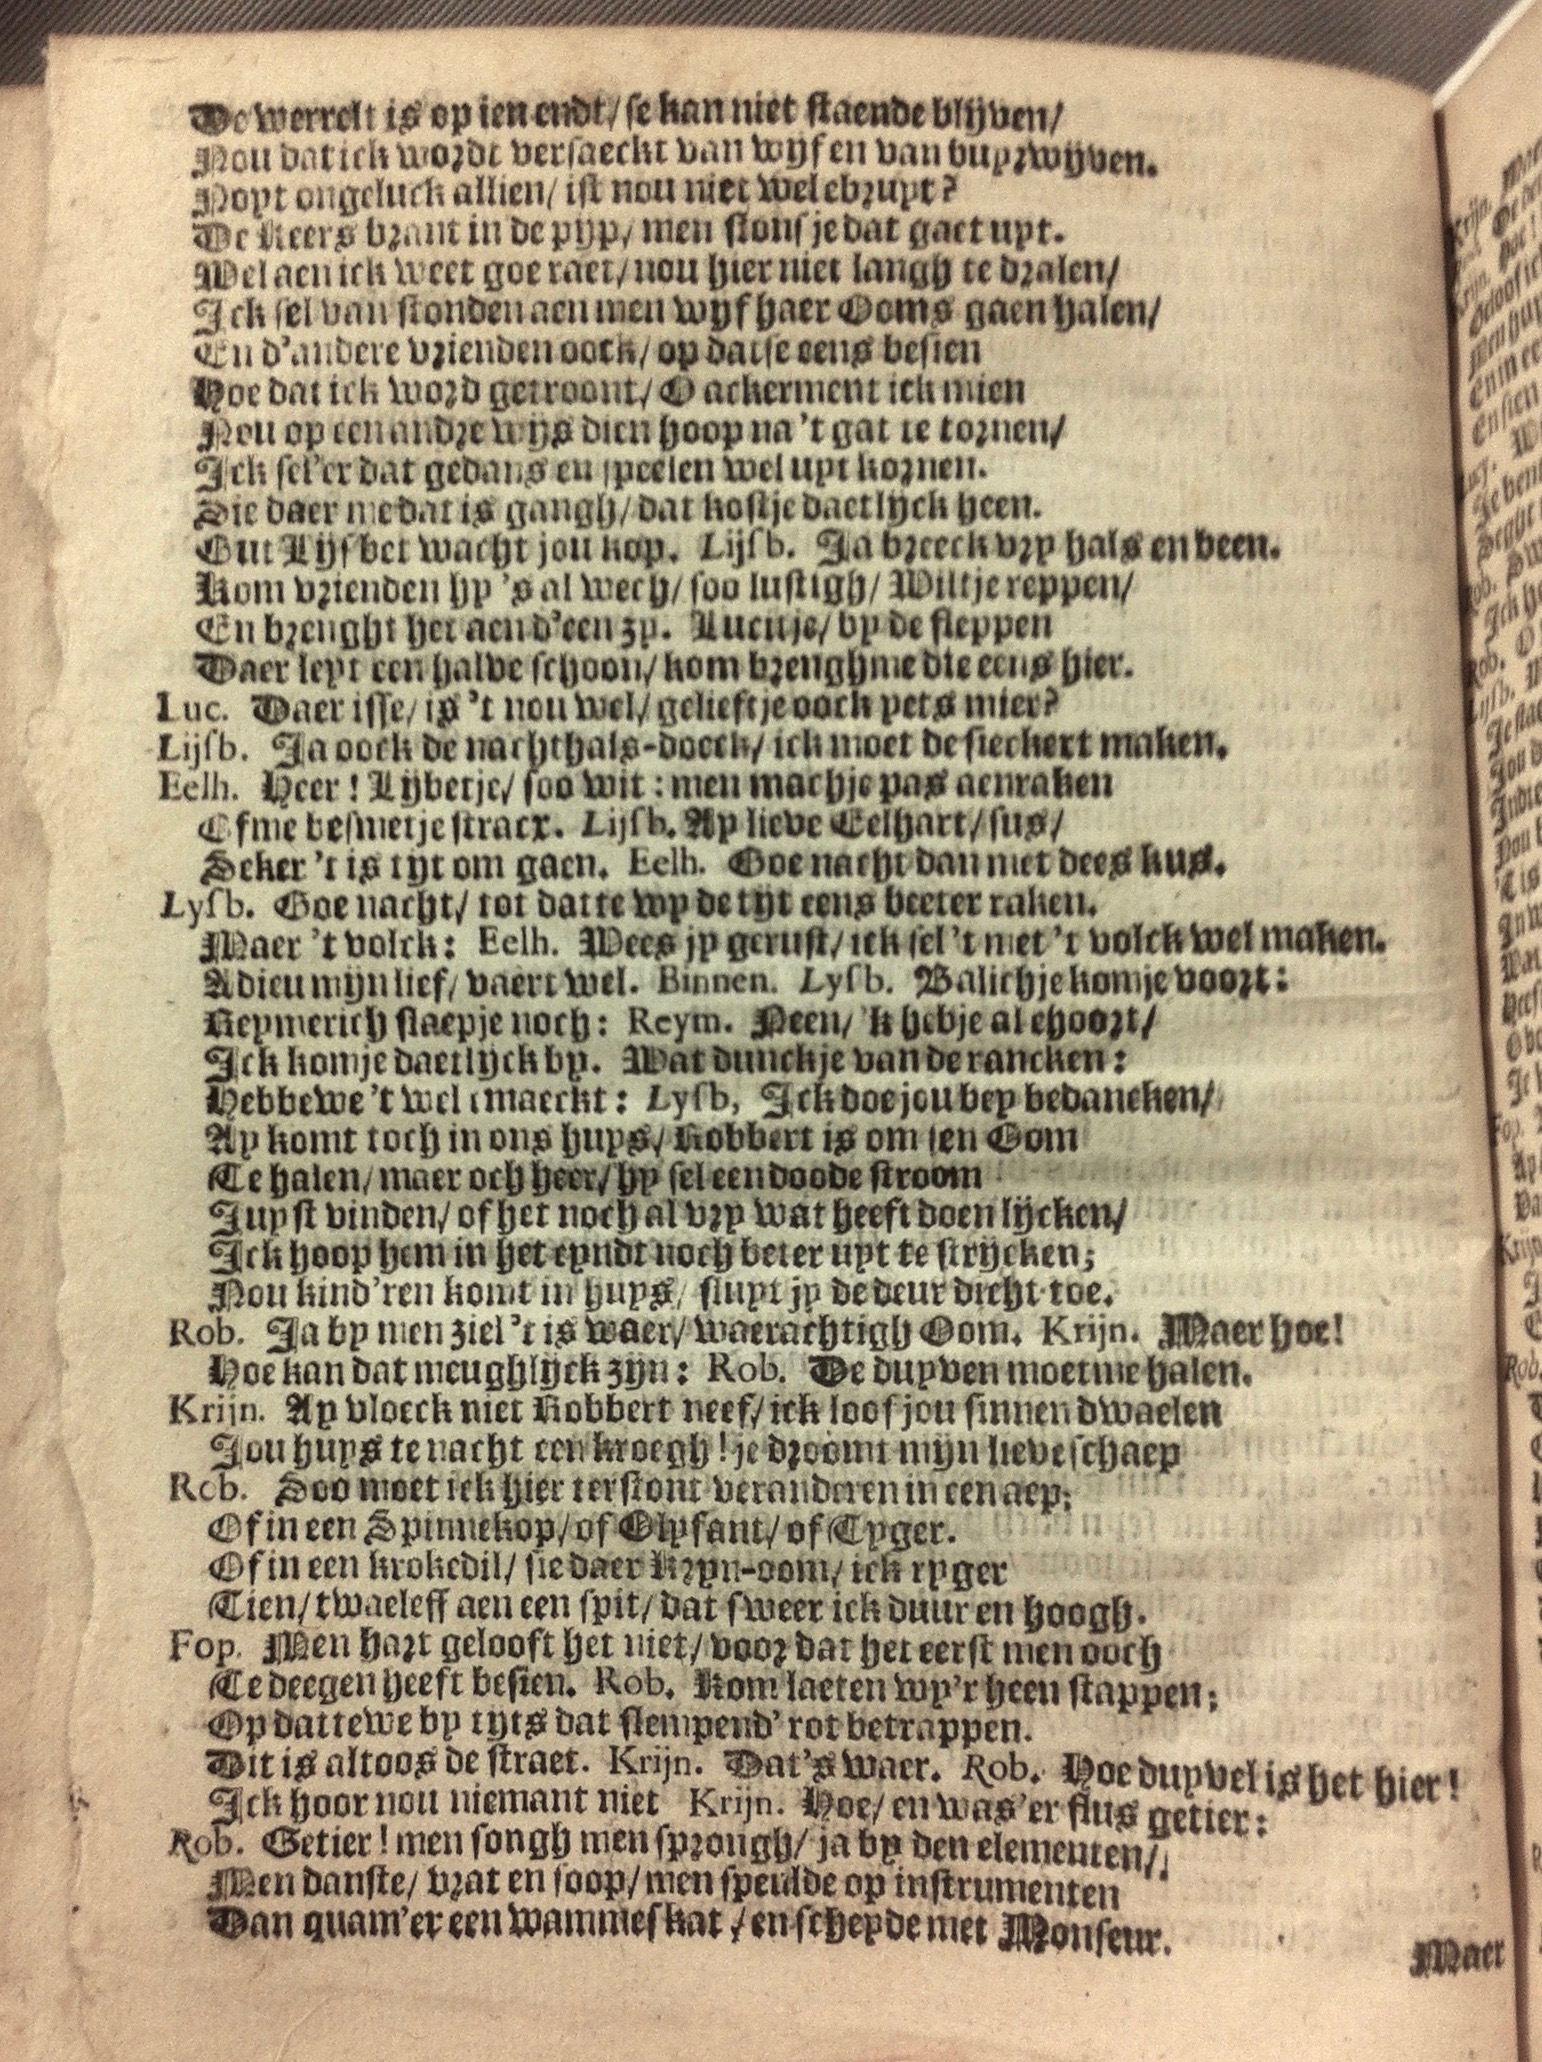 De werrelt is op ien endt/ se kan niet staende blijven/
Nou dat ick wordt versaeckt van wijf en van buyrwijven.
Noyt ongeluck allien/ ist nou niet wel ebruyt?
De Keers brant in de pijp/ men stonf je dat gaet uyt.
Wel aen ick weet goe raet/ nou hier niet langh te dralen/
Ick sel van stonden aen men wijf haer Ooms gaen halen/
En d'andere vrienden oock/ op datse eens besien
Hoe dat ick word getroont/ O ackerment ick mien
Nou op een andre wijs dien hoop na 't gat te tornen/
Ick sel'er dat gedans en speelen wel uyt kornen.
Sie daer me dat is gangh/ dat kost je daetlijck heen.
Gut Lijsbet wacht jou kop. Lijsb. Ja breeck vry hals en been.
Kom vrienden hy 's al wech/ soo lustigh/ Wilt je reppen/
En brenght het aen d'een zy. Lucutje/ by de steppen
Daer leyt een halve schoon/ kom brenghme die eens hier.
Luc. Daer isse/ is 't nou wel/ gelieft je oock yets mier?
Lijsb. Ja oock de nachthals-doeck/ ick moet de sieckert maken.
Eelh. Heer! Lijbetje/ soo wit: men mach je pas aenraken
Of me besmet je stracx. Lijsb. Ay lieve Eelhart/ sus/
Seker 't is tijt om gaen. Eelh. Goe nacht dan met dees kus.
Lysb. Goe nacht/ tot datte wy de tijt eens beeter raken.
Maer 't volck: Eelh. Wees jy gerust/ ick sel 't met 't volck wel maken.
Adieu mijn lief/ vaert wel. Binnen. Lysb. Balichje komje voort:
Reymerich slaepje noch: Reym. Neen/ 'k heb je al ehoort/
Ick kom je daetlijck by. Wat dunckje van de rancken:
Hebbe we 't wel emaeckt: Lysb, Ick doe jou bey bedancken/
Ay komt toch in ons huys/ Robbert is om sen Oom
Te halen/ maer och heer/ hy sel een doode stroom
Juyst vinden/ of het noch al vry wat heeft doen lijcken/
Ick hoop hem in het eyndt noch beter uyt te strijcken;
Nou kind'ren komt in huys/ sluyt jy de deur dicht toe.
Rob. Ja by men ziel 't is waer/ waerachtigh Oom. Krijn. Maer hoe!
Hoe kan dat meughlijck zijn: Rob. De duyven moet me halen.
Krijn. Ay vloeck niet Robbert neef/ ick loof jou sinnen dwaelen
Jou huys te nacht een kroegh! je droomt mijn lieve schaep
Rob. Soo moet ick hier terstont veranderen in een aep;
Of in een Spinnekop/ of Olyfant/ of Tyger.
Of in een krokedil/ sie daer Kryn-oom/ ick ryger
Tien/ twaeleff aen een spit/ dat sweer ick duur en hoogh.
Fop. Men hart gelooft het niet/ voor dat het eerst men ooch
Te deegen heeft besien. Rob. Kom laeten wy'r heen stappen;
Op dattewe by tijts dat slempend' rot betrappen.
Dit is altoos de straet. Krijn. Dat's waer. Rob. Hoe duyvel is het hier!
Ick hoor nou niemant niet Krijn. Hoe/ en was'er flus getier:
Rob. Getier! men songh men sprongh/ ja by den elementen/
Men danste/ vrat en soop/ men speulde op instrumenten
Dan quam'er een wammeskat/ en scheyde met Monseur.
Maer